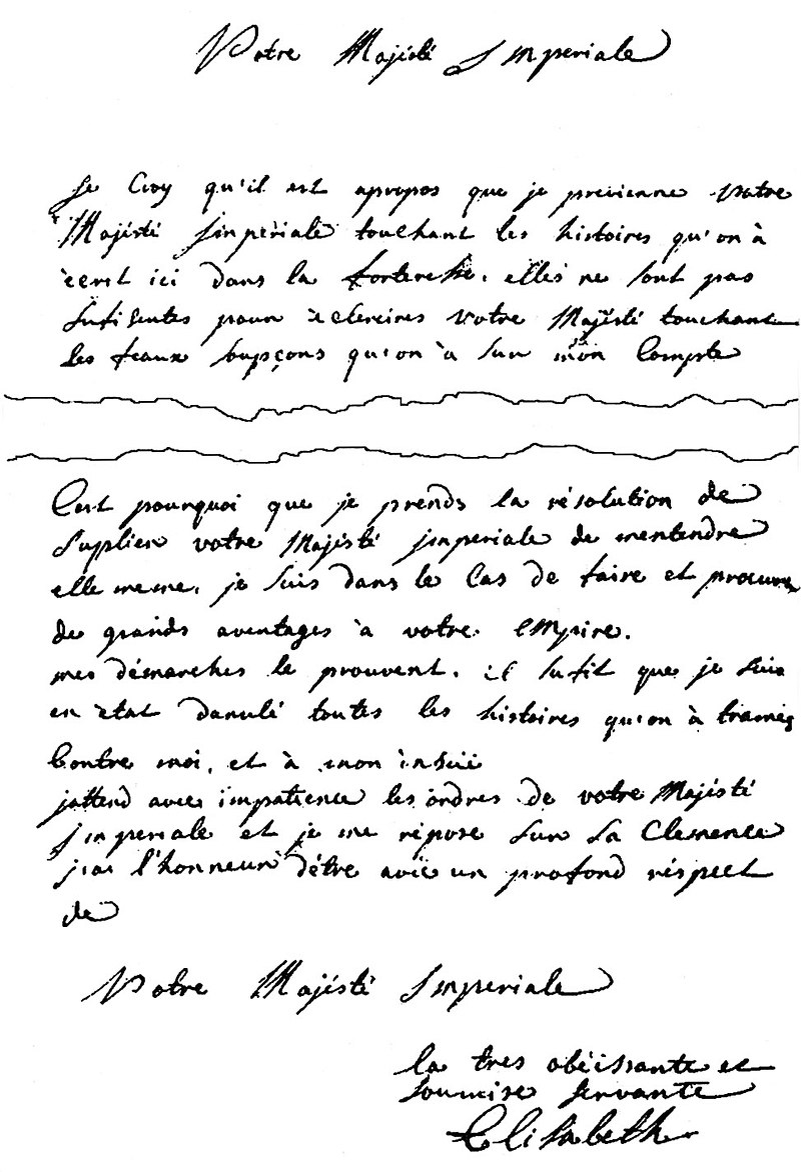 Votre Majésté Imperiale
Je Croy qu'il est apropos que je previenne votre
Majésté Imperiale touchant les histoires qu'on à
ècrit ici dans la forteresse. elles ne sont pas
sufisentes pour èclereires votre Majésté touchant
les feaux soupçons qu'on à sur mon Compte
C'est pourquoi que je prends la résolution de
suplier votre Majésté imperiale de mentendre
elle meme, je suis dans le Cas de faire et procurer
de grands aventages à votre Empire.
mes démarches le prouvent. il sufit que je suis
en ètat danulé toutes les histoires qu'on à tramés
Contre moi, et à mon insüë
jattend avec impatience les ordres de votre Majésté
imperiale et je me répose sur sa Clemence
j'ai l'honneur d'étre avec un profond réspect
de
Votre Majésté Imperiale
la tres obéissante et
soumise servante
Elisabeth